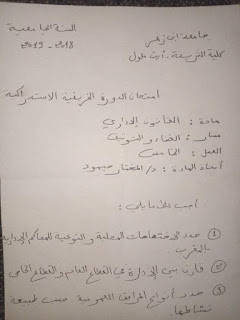 جامعة ابن زهر
السنة الجامعية
كلية الشريعة - أيت ملول
2018 - 2019
امتحان الدورة الخريفية الاستدراكية
مادة : القانون الإداري
مسار : القضاء والتوثيق
الفصل : الخامس
أستاذ المادة : د/المختار صيمود
أجب عما يلي :
① حدد الاختصاصات المحلية والنوعية للمحاكم الإدارية
بالمغرب.
② قارن بين الإدارة في القطاع العام والقطاع الخاص
③ حدد أنواع المرافق العمومية حسب طبيعة
نشاطها